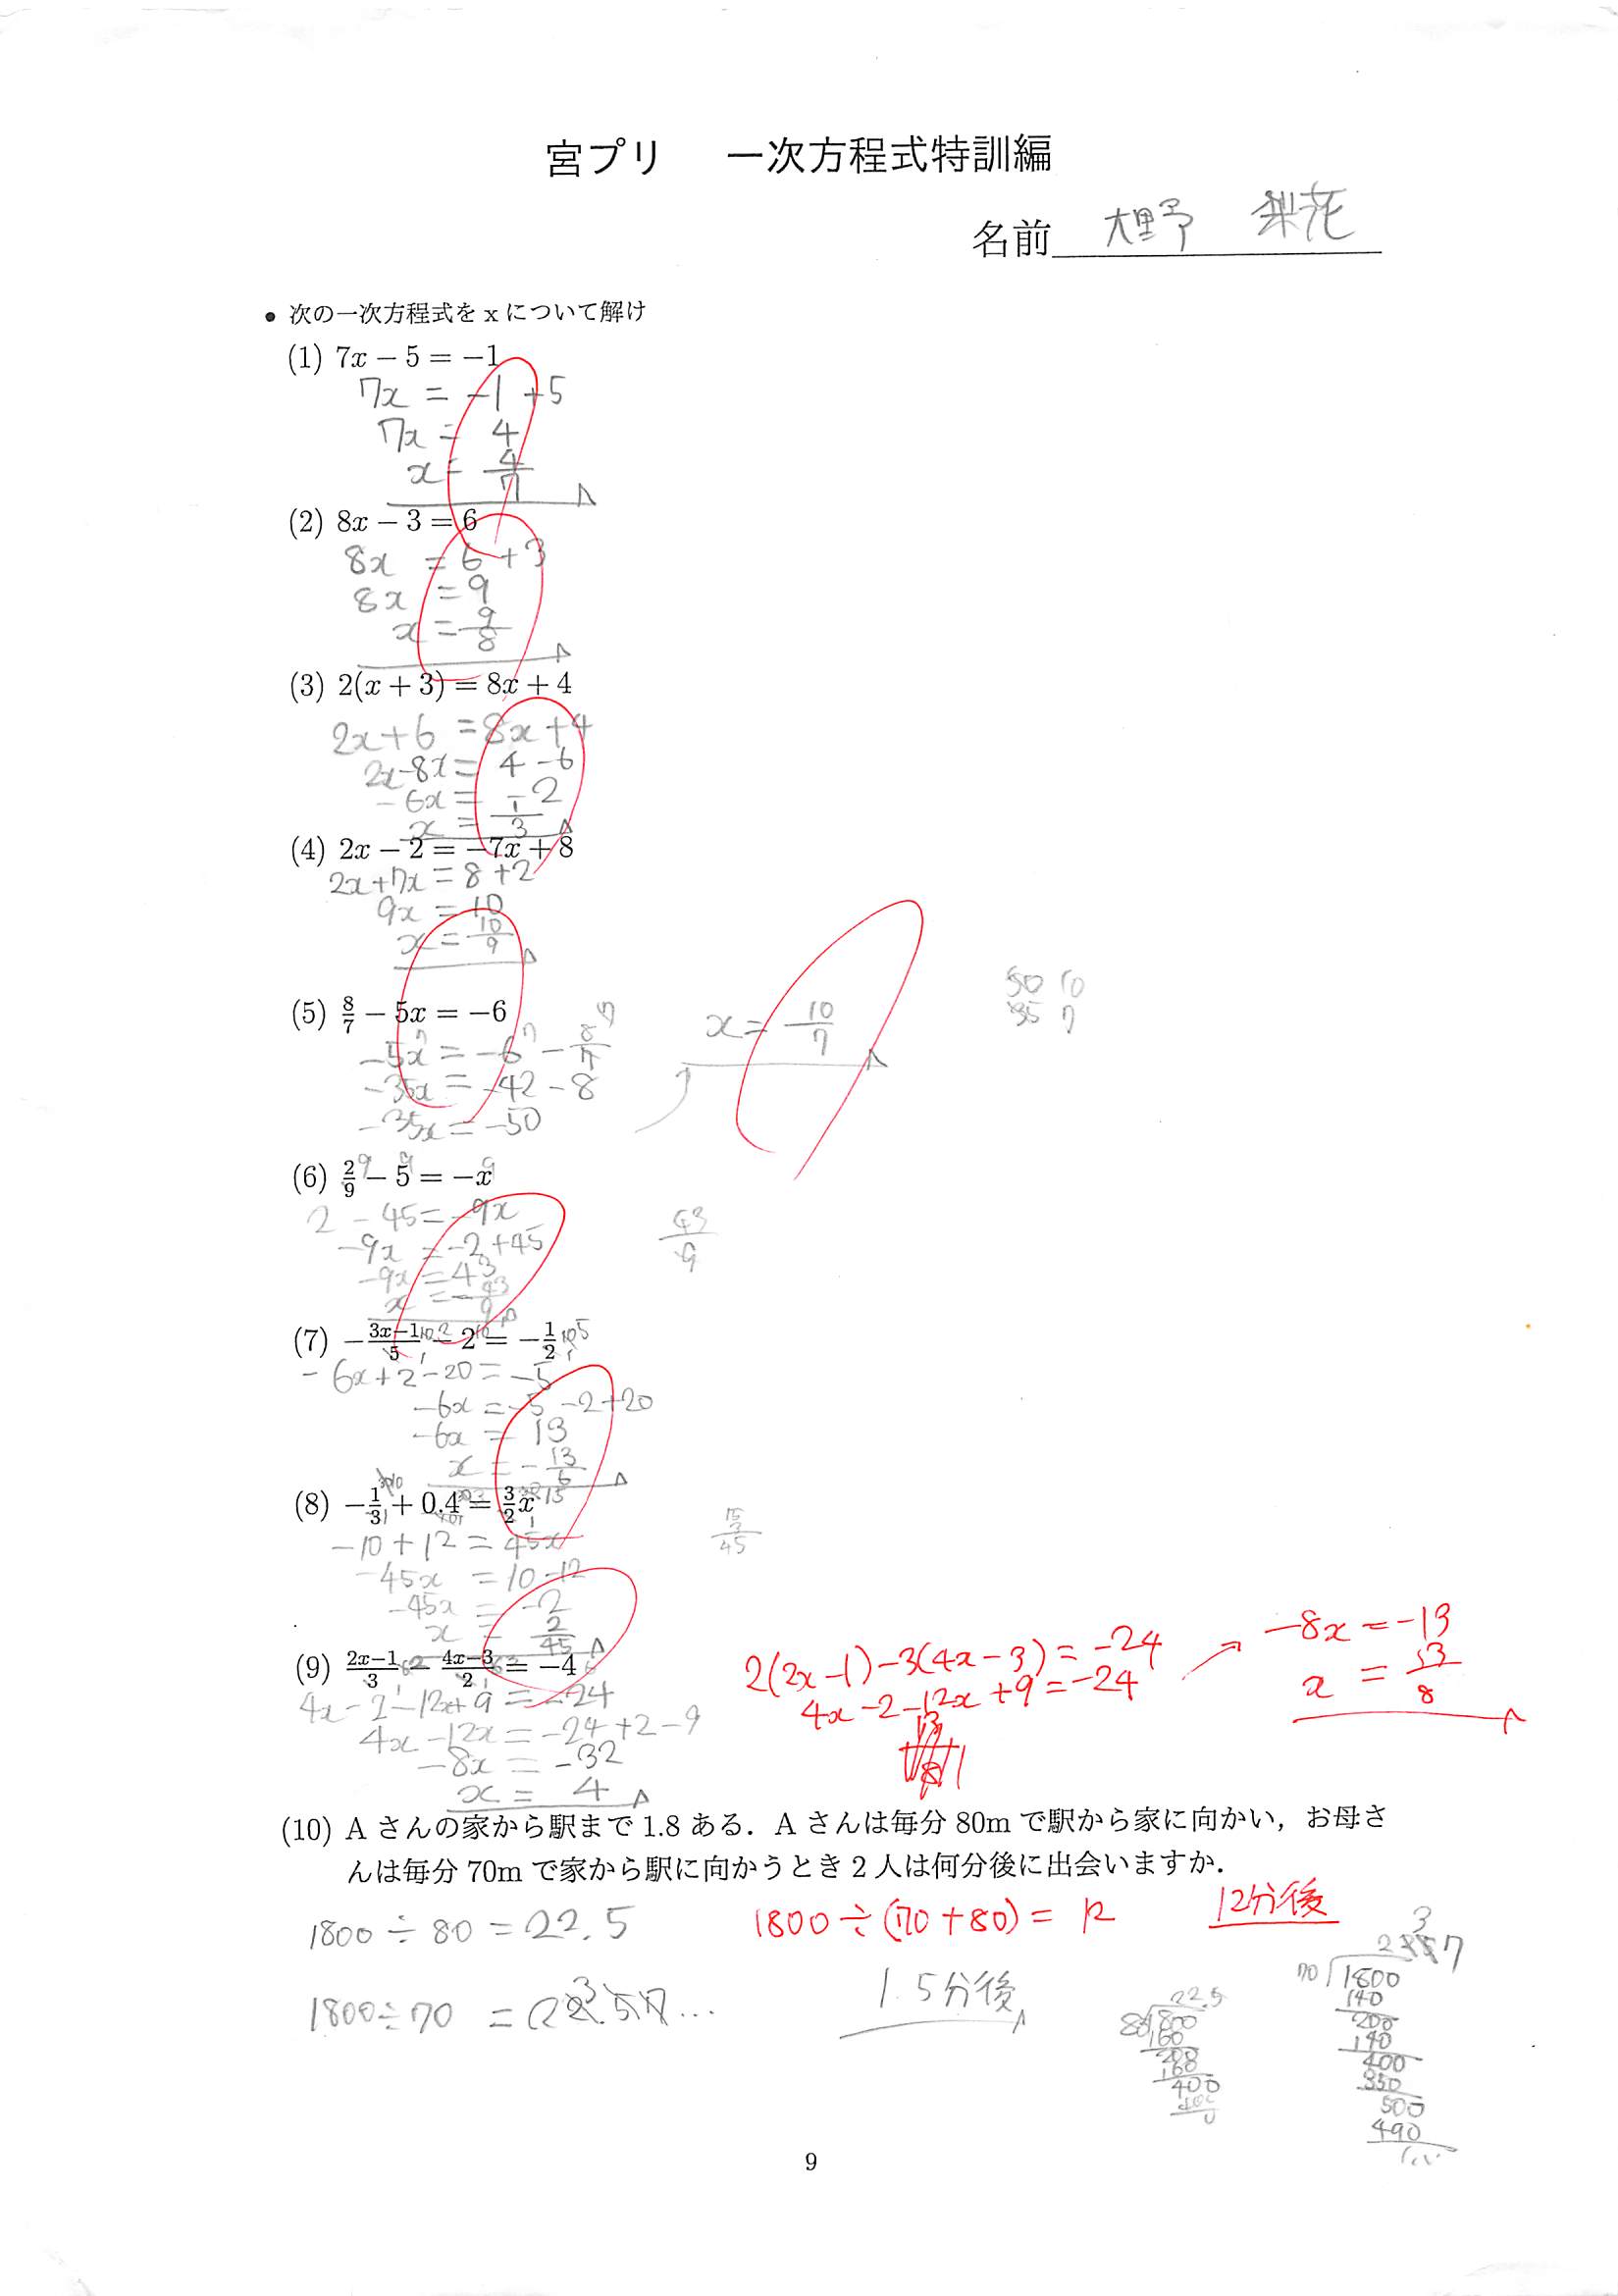 宮プリ 一次方程式特訓編
名前 大野 梨花
• 次の一次方程式を x について解け
(1) 7x − 5 = −1
7x = −1 + 5
7x = 4
x = 4/7
(2) 8x − 3 = 6
8x = 6 + 3
8x = 9
x = 9/8
(3) 2(x + 3) = 8x + 4
2x + 6 = 8x + 4
2x − 8x = 4 − 6
−6x = −2
x = 1/3
(4) 2x − 2 = −7x + 8
2x + 7x = 8 + 2
9x = 10
x = 10/9
(5) 8/7 − 5x = −6
−5x = −6 − 8/7
−35x = −42 − 8
−35x = −50
x = 10/7
50 10
35 7
(6) 2/9 − 5 = −x
2 − 45 = −9x
−9x = −2 + 45
−9x = 43
x = −43/9
43/9
(7) −(3x−1)/5 − 2 = −1/2
−6x + 2 − 20 = −5
−6x = −5 − 2 + 20
−6x = 13
x = −13/6
(8) −1/3 + 0.4 = 3/2 x
−10 + 12 = 45x
−45x = 10 − 12
−45x = −2
x = 2/45
(9) (2x−1)/3 − (4x−3)/2 = −4
4x − 2 − 12x + 9 = −24
4x − 12x = −24 + 2 − 9
−8x = −32
x = 4
2(2x−1)−3(4x−3) = −24
4x−2−12x+9 = −24
−8x = −13
x = 13/8
(10) A さんの家から駅まで 1.8 ある．A さんは毎分 80m で駅から家に向かい，お母さ
んは毎分 70m で家から駅に向かうとき 2 人は何分後に出会いますか．
1800 ÷ 80 = 22.5
1800 ÷ (70 + 80) = 12
12分後
1800 ÷ 70 =
1.5分後
22.5
80 1800
160
200
160
400
400
0
70 1800
140
200
140
400
350
500
490
9